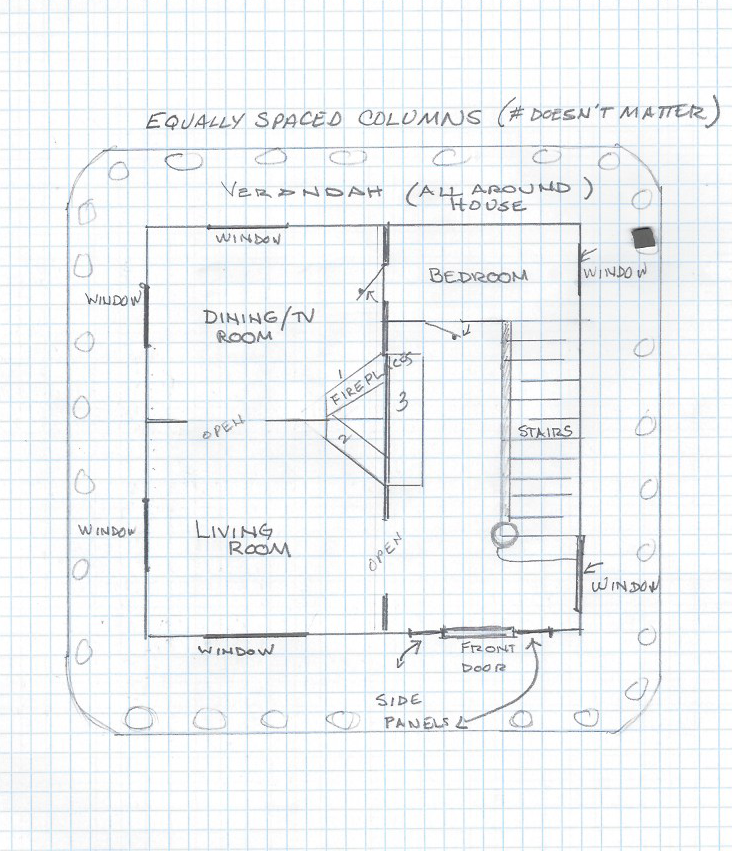 EQUALLY SPACED COLUMNS (# DOESN'T MATTER)
VERANDAH (ALL AROUND)
HOUSE
WINDOW
BEDROOM
WINDOW
WINDOW
DINING/TV
ROOM
1
FIREPLACES
3
OPEN
2
STAIRS
WINDOW
LIVING
ROOM
OPEN
WINDOW
WINDOW
FRONT
DOOR
SIDE
PANELS